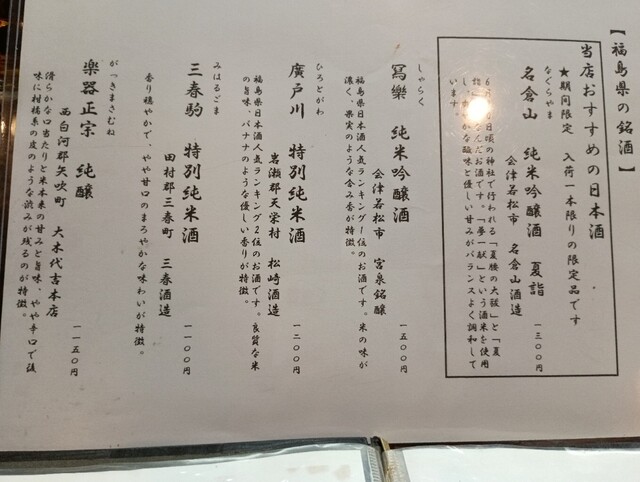 【福島県の銘酒】
当店おすすめの日本酒
★期間限定 入荷一本限りの限定品です
なぐらやま
名倉山 純米吟醸酒 夏詣 一三〇〇円
会津若松市 名倉山酒造
日頃の神社で行われる「夏越の大祓」と「夏
んだお酒です。「夢一献」という酒米を使用
な酸味と優しい甘みがバランスよく調和して
います。
しゃらく
冩樂 純米吟醸酒 一五〇〇円
会津若松市 宮泉銘醸
福島県日本酒人気ランキング1位のお酒です。米の味が
濃く、果実のような含み香が特徴。
ひろとがわ
廣戸川 特別純米酒 一二〇〇円
岩瀬郡天栄村 松崎酒造
福島県日本酒人気ランキング2位のお酒です。良質な米
の旨味、バナナのような優しい香りが特徴。
みはるごま
三春駒 特別純米酒 一一〇〇円
田村郡三春町 三春酒造
香り穏やかで、やや甘口のまろやかな味わいが特徴。
がっきまさむね
楽器正宗 純醸 一一五〇円
西白河郡矢吹町 大木代吉本店
滑らかな口当たりと米本来の甘みと旨味、やや辛口で後
味に柑橘系の皮のような渋みが残るのが特徴。